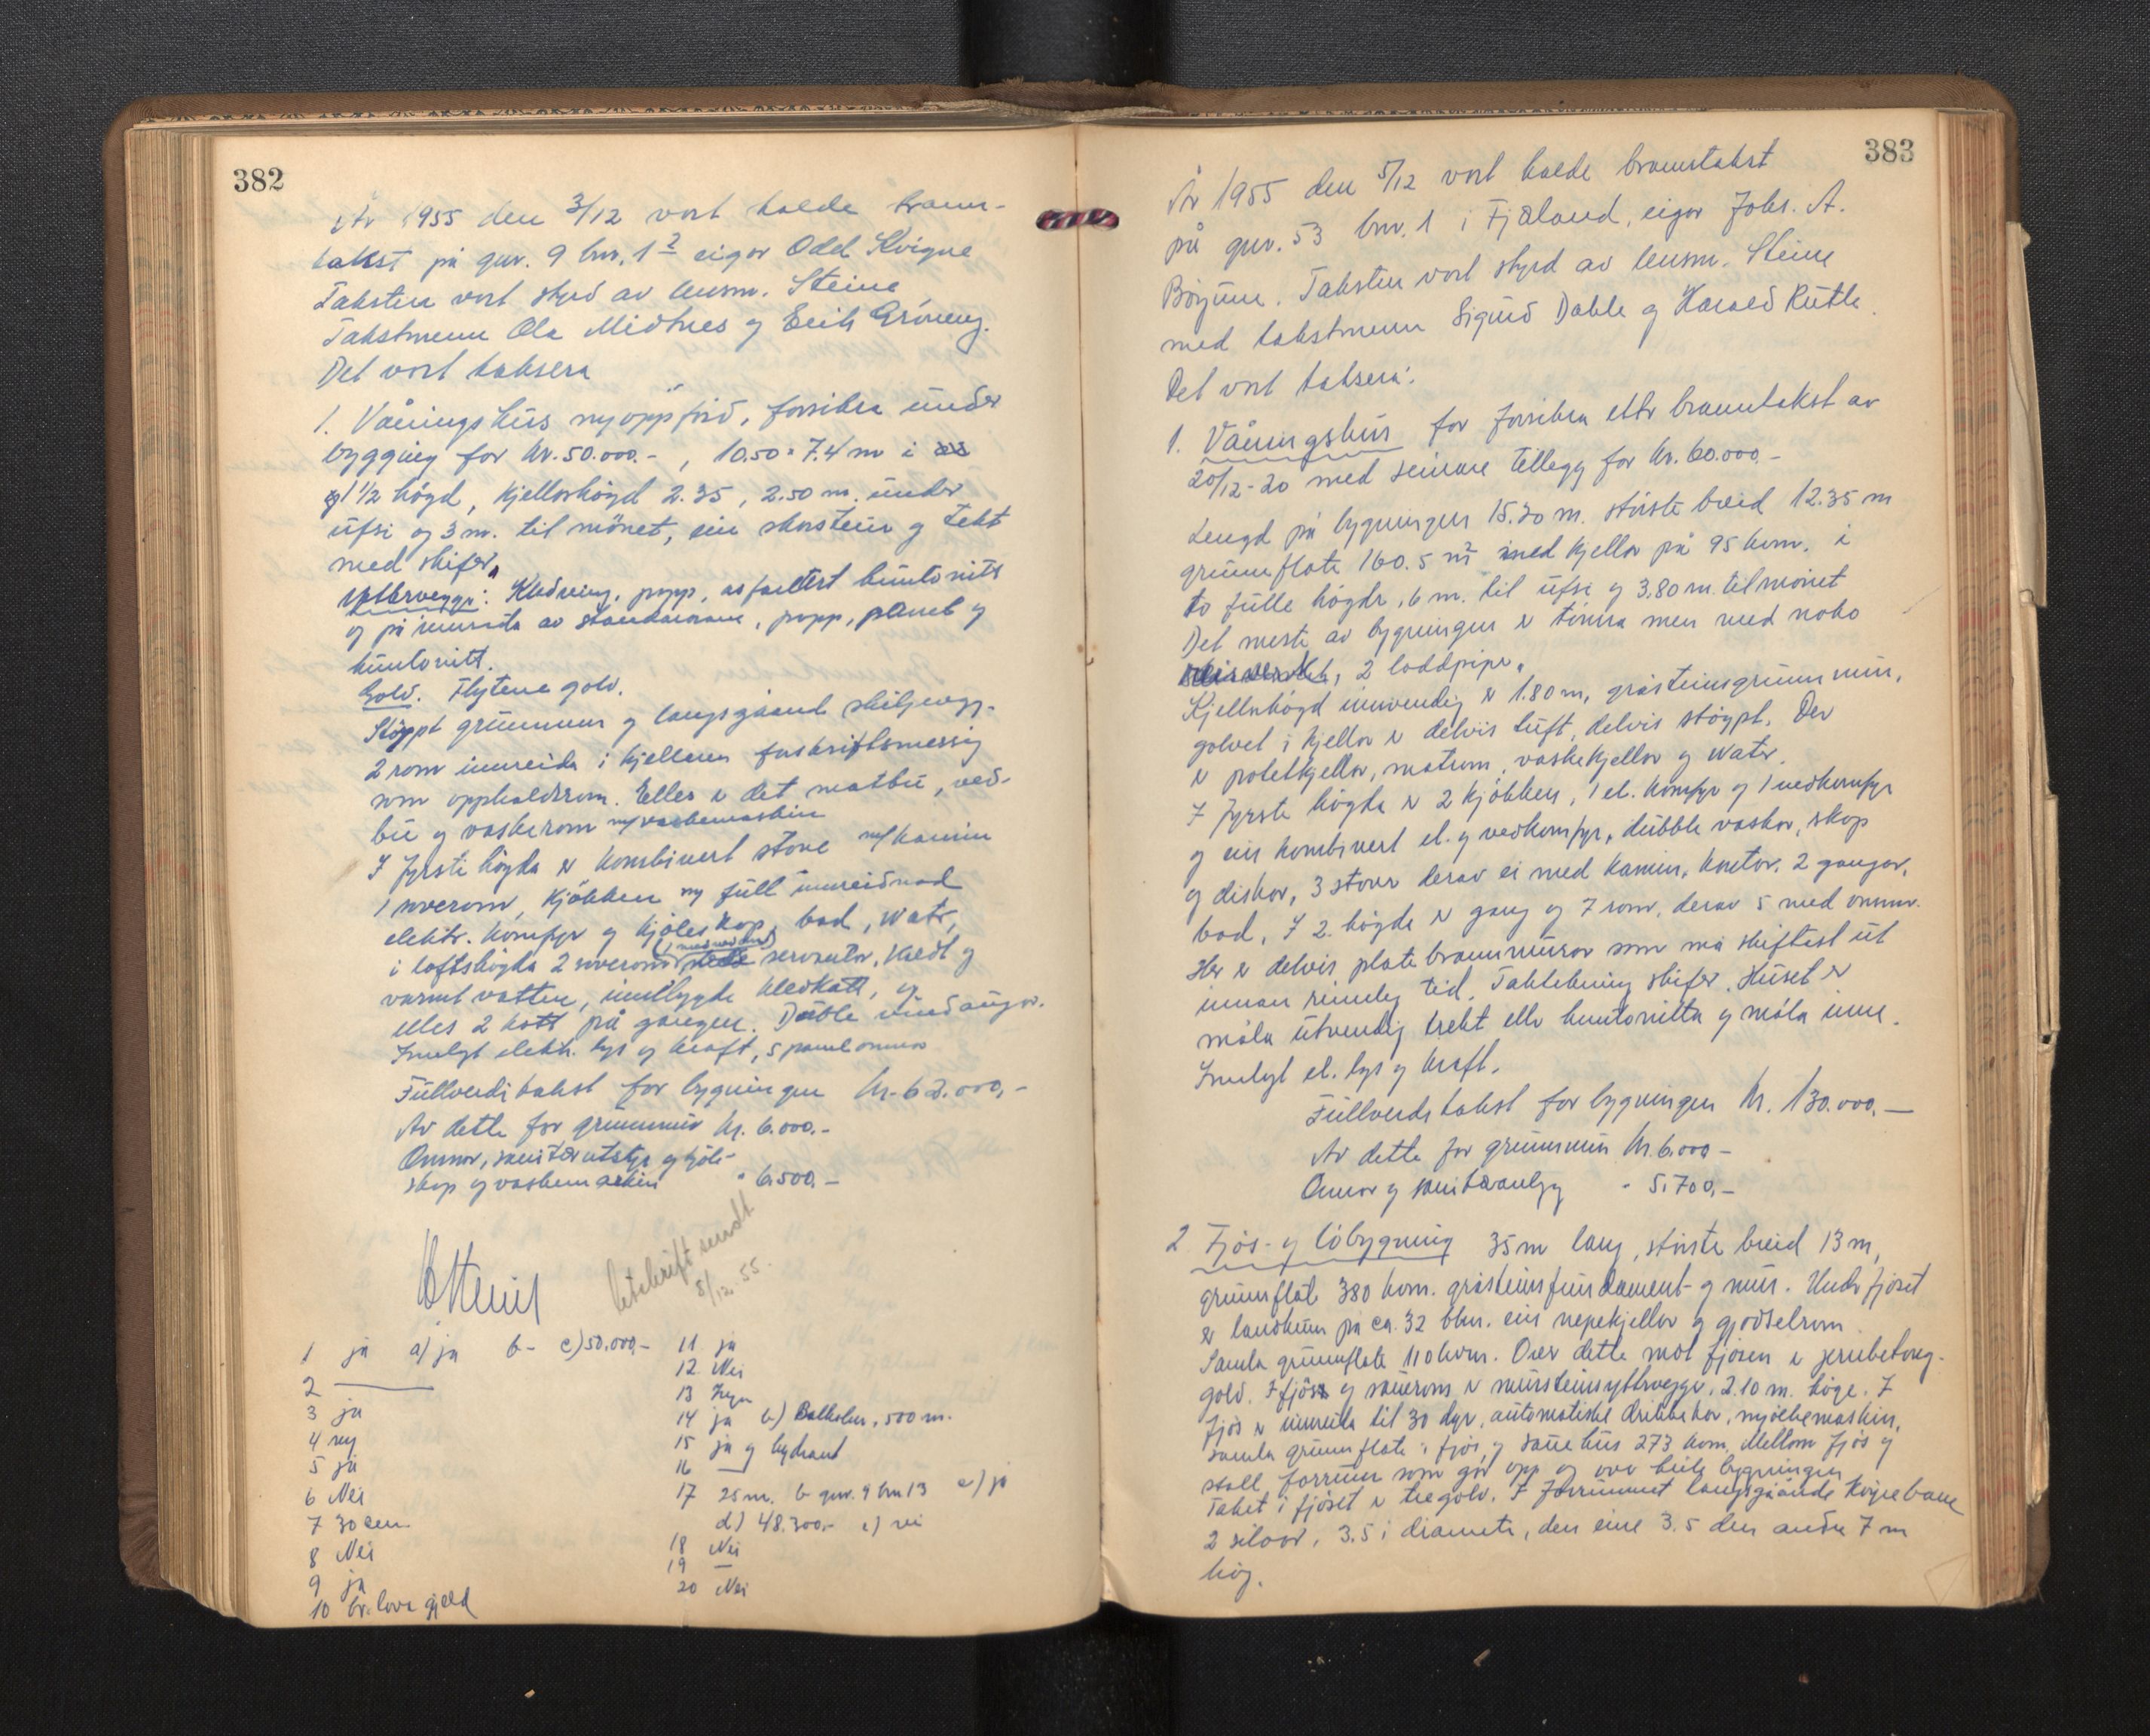 382
År 1955 den 3/12 vart halde brann-
takst på gnr. 9 bnr. 1² eigar Odd Kvigne
Taksten vart styrd av lensm. Steine
Takstmenn Ola Midtnes og Eirik Gröneng.
Det vart taksera
1. Våningshus nyoppförd, forsikra under
bygging for kr. 50.000.- , 10.50 × 7.4 m i
1 1/2 högd, kjellarhögd 2.35, 2.50 m. under
ufsi og 3 m. til mönet, ein skorstein og tekt
med skifer.
Ytterveggi: Kledning, papp, asfaltert huntonitt
og på innsida av standarane, papp, panel og
huntonitt.
Golv. Flytene golv.
Stöypt grunnmur og langsgåand skiljevegg.
2 rom innreida i kjellaren forskriftsmessig
som oppholdsrom. Elles e det matbu, ved-
bu og vaskerom m/vaskemaskin
I fyrste högda er kombinert stove m/kamin
1 soverom, kjökken m/ full innreidnad
elektr. komfyr og kjöleskap, bad, water,
i loftshögda 2 soverom servantar, kaldt og
varmt vatten, innbygde kledkott, og
elles 2 kott på gangen. Doble vindaugor.
Innlagt elektr. lys og kraft, 5 panelomnar
Fullverditakst for bygningen kr. 62.000,-
Av dette for grunnmur kr. 6.000.-
Omnar, sanitærutstyr og kjöle-
skap og vaskemaskin " 6.500.-
Steine
Utskrift sendt
8/12.55.
1 ja a) ja b - c) 50.000,-
2 —
3 ja
4 ny
5 ja
6 Nei
7 30 cm
8 Nei
9 ja
10 br. lova gjeld
11 ja
12 Nei
13 Ingen
14 ja b) 500 m.
15 ja og hydrant
16 —
17 25 m. b gnr. 9 bnr 13 c) ja
d) 48.300,- e) nei
18 Nei
19 —
20 Nei
383
År 1955 den 5/12 vart halde branntakst
på gnr. 53 bnr. 1 i Fjæland, eigar Johs. A.
Böyum. Taksten vart styrd av lensm. Steine
med takstmenn Sigurd Dahle og Harald Rutle.
Det vart taksera:
1. Våningshus för forsikra ettr branntakst av
20/12-20 med seinare tillegg for kr. 60.000.-
Lengd på bygningen 15.30 m. störste breid 12.35 m
grunnflate 160.5 m² med kjellar på 95 kvm. i
to fulle högdr, 6 m. til ufsi og 3.80 m. til mönet
Det meste av bygningen er timra men med noko
reisverk, 2 loddpipr.
Kjellarhögd innvendig er 1.80 m, gråsteinsgrunnmur,
golvet i kjellar er delvis tuft, delvis stöypt. Der
er potetkjellar, matrom, vaskekjellar og water.
I fyrste högda er 2 kjökken, 1 el. komfyr og 1 vedkomfyr
og ein kombinert el. og vedkomfyr, dubble vaskar, skap
og diskar, 3 stover derav ei med kamin, kontor, 2 gangar,
bad, I 2. högda er gang og 7 rom, derav 5 med omnar.
Her er delvis plate brannmurar som må skiftast ut
innan rimeleg tid. Taktekning skifer. Huset er
måla utvendig trekt eller huntonitta og måla inne.
Innlagt el. lys og kraft.
Fullverditakst for bygningen kr. 130.000,—
Av dette for grunnmur kr. 6.000 -
Omnar og sanitæranlegg " 5.700,-
2. Fjös- og löbygning 35 m lang, störste breid 13 m,
grunnflate 380 kvm. gråsteinsfundament- og mur. Under fjöset
er landkum på ca. 32 kbm. ein nepekjellar og gjödselrom.
Samla grunnflate 110 kvm. Over dette mot fjösen er jernbetong-
golv. I fjös og sauerom er mursteinsyttrveggr, 2.10 m. höge. I
fjös er innreida til 30 dyr, automatiske drikkekar, mjölkemaskin,
samla grunnflate i fjös og sauehus 273 kvm. Mellom fjös og
stall forrum som går opp og over heile bygningen
Taket i fjöset er tregolv. I forrummet langsgåande köyrebane
2 siloar, 3.5 i diameter, den eine 3.5 den andre 7 m
hög.